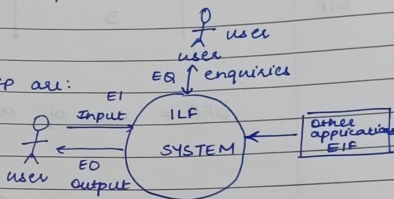 user
user
EQ enquiries
FP are:
EI
Input
ILF
SYSTEM
EO
Output
user
other
applications
EIF